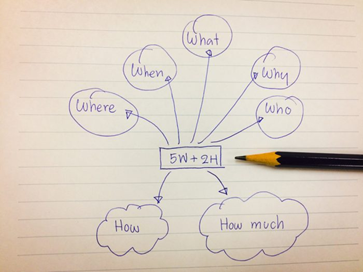 What
When
Why
Where
Who
5W+2H
How
How much